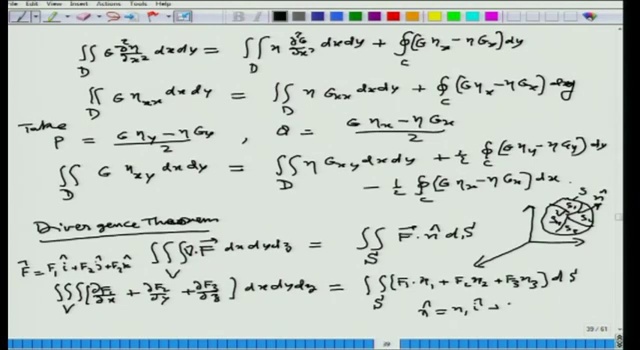 File Edit View Insert Actions Tools Help
∬_D G ∂²η/∂x² dxdy = ∬_D η ∂²G/∂x² dxdy + ∮_C (G η_x − η G_x) dy
∬_D G η_xx dxdy = ∬_D η G_xx dxdy + ∮_C (G η_x − η G_x) dy
Take P = (G η_y − η G_y)/2 , Q = (G η_x − η G_x)/2
∬_D G η_xy dxdy = ∬_D η G_xy dxdy + ½ ∮_C (G η_y − η G_y) dy
− ½ ∮_C (G η_x − η G_x) dx .
Divergence Theorem
F⃗ = F₁ î + F₂ ĵ + F₃ k̂ ∭_V ∇·F⃗ dxdydz = ∬_S F⃗ · n̂ dS
∭_V [∂F₁/∂x + ∂F₂/∂y + ∂F₃/∂z] dxdydz = ∬_S [F₁·n₁ + F₂n₂ + F₃n₃] dS
n̂ = n₁ î +
S n̂
S₁ S₂
29 / 61
29